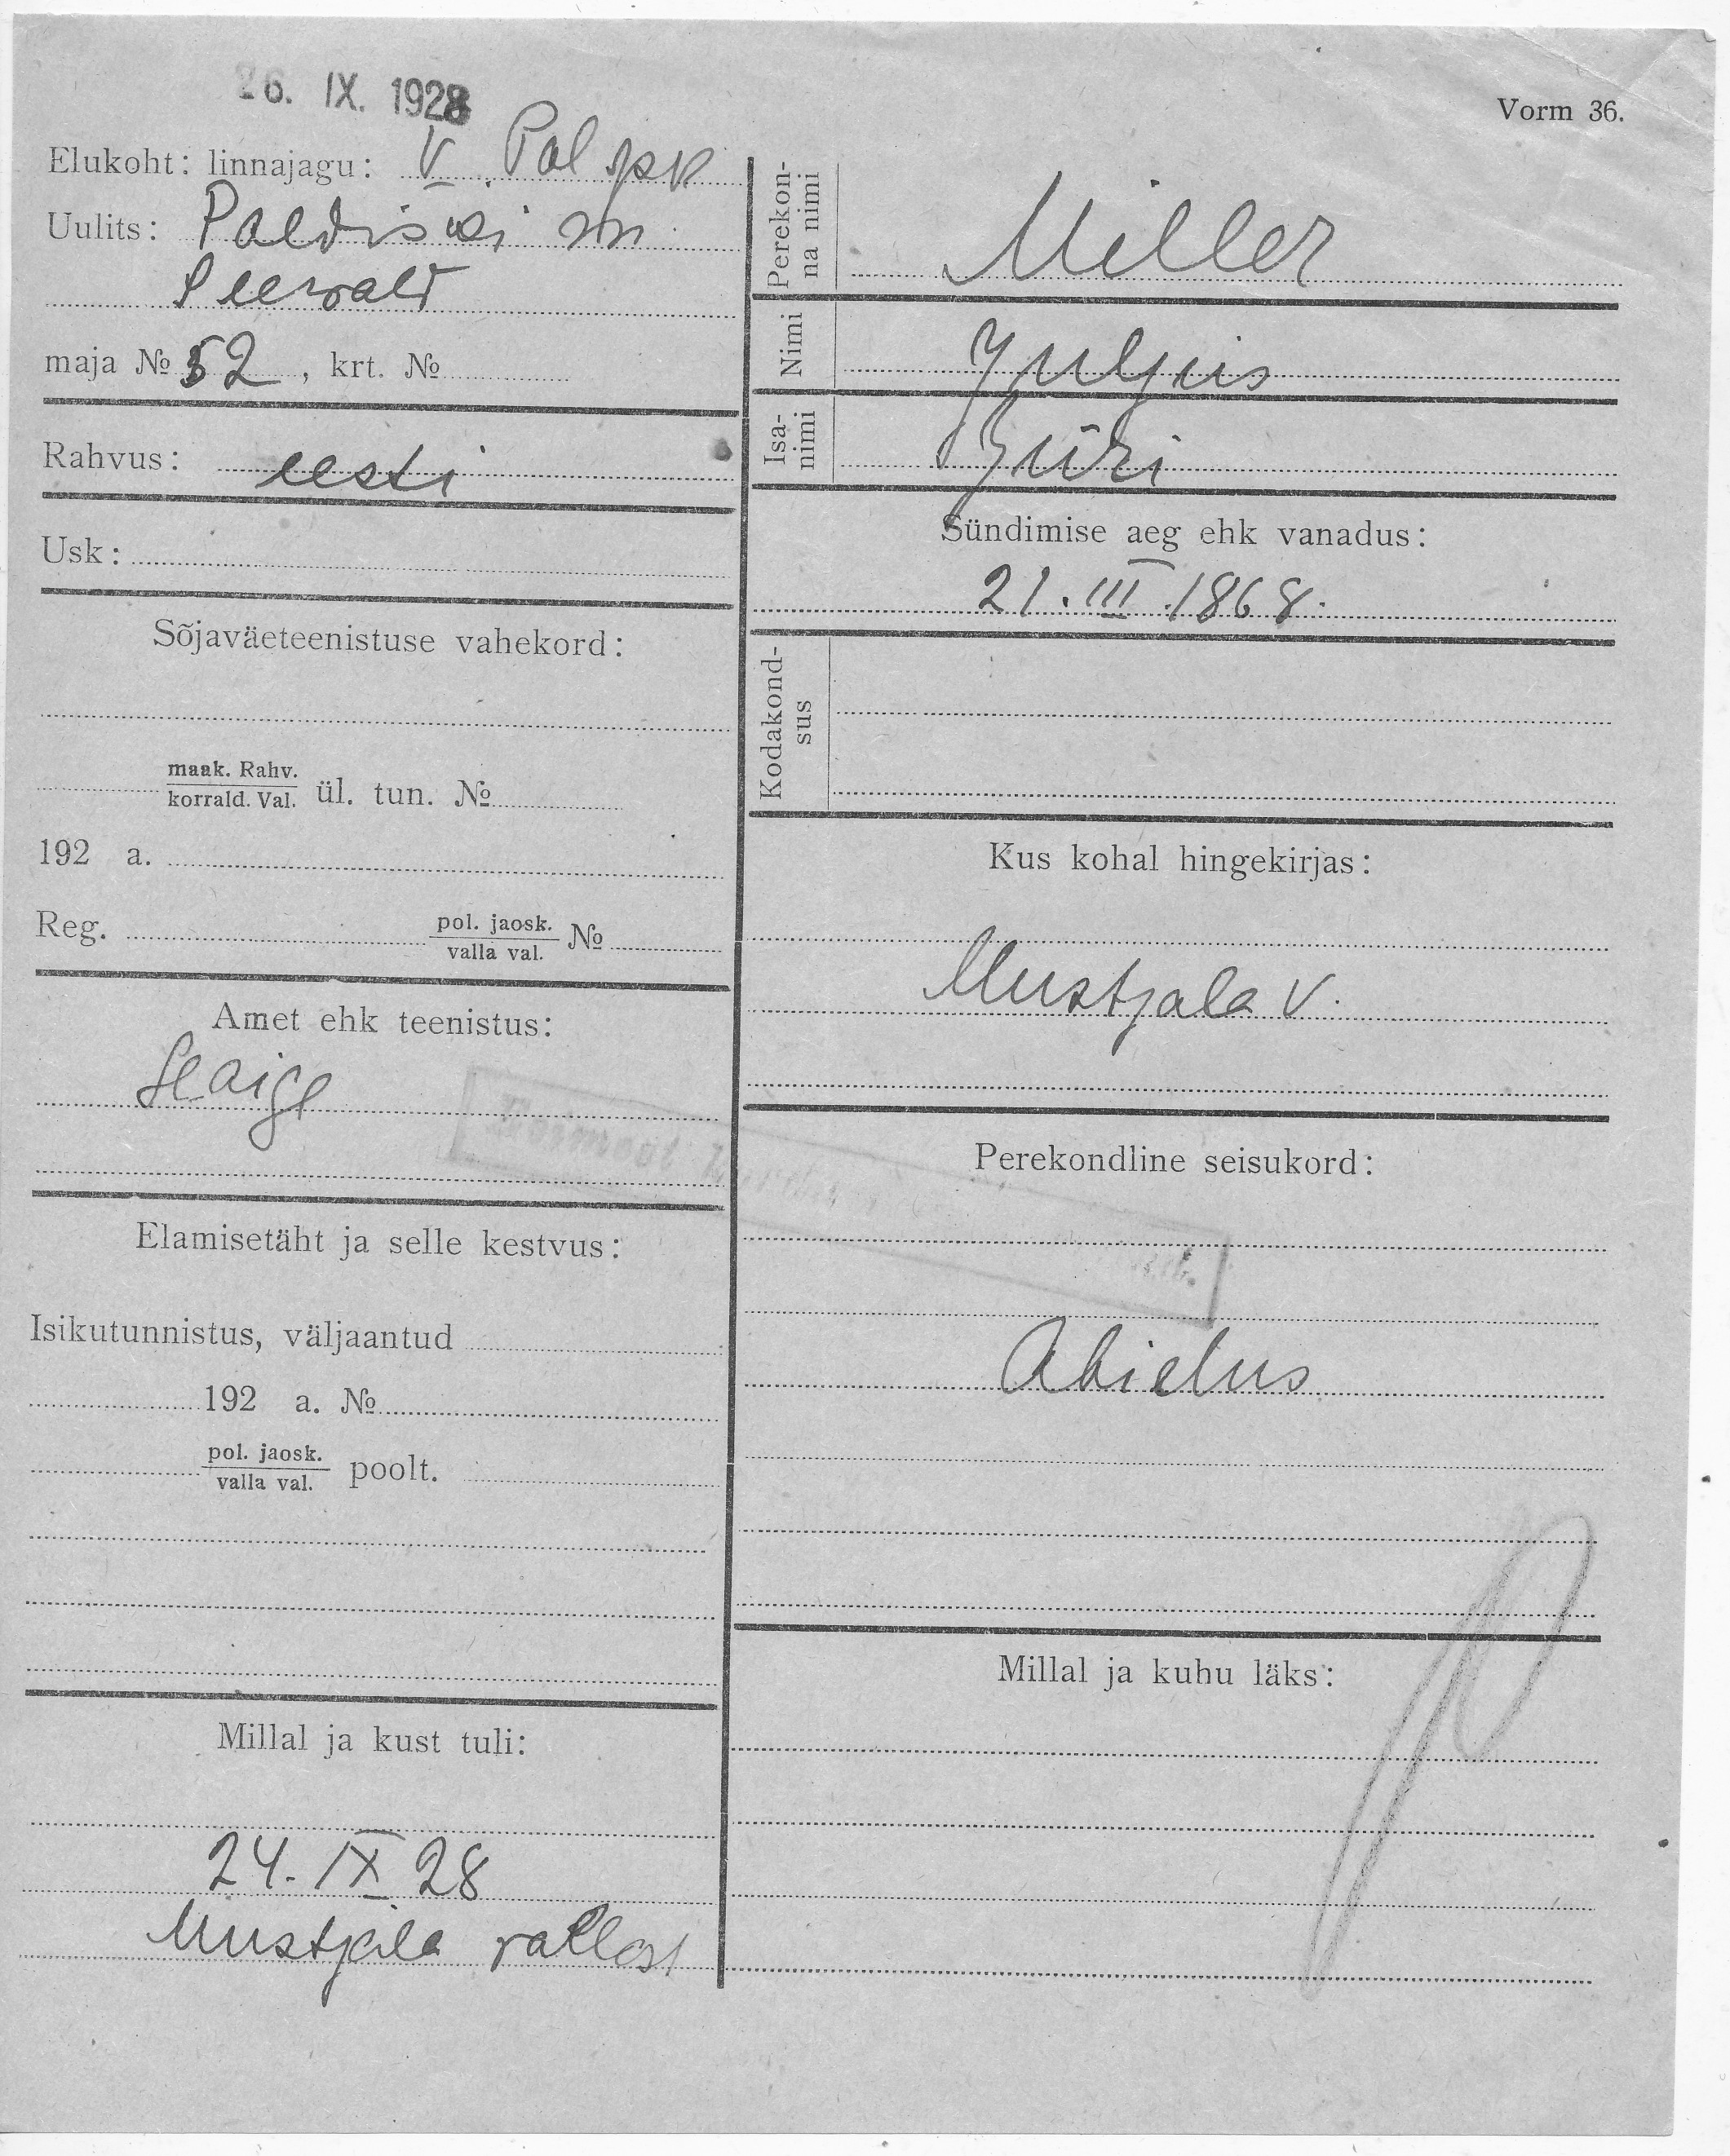 26. IX. 1928
Vorm 36.
Elukoht: linnajagu: V Pol jsk
Uulits: Paldiski mn.
Seewald
maja № 52, krt. №
Rahvus: eesti
Usk:
Sõjaväeteenistuse vahekord:
maak. Rahv.
korrald. Val. ül. tun. №
192 a.
Reg. pol. jaosk.
valla val. №
Amet ehk teenistus:
Haige
Elamisetäht ja selle kestvus:
Isikutunnistus, väljaantud
192 a. №
pol. jaosk.
valla val. poolt.
Millal ja kust tuli:
24. IX 28
Mustjala vallast
Perekon-
na nimi
Miller
Nimi
Juljus
Isa-
nimi
Jüri
Sündimise aeg ehk vanadus:
21. III. 1868.
Kodakond-
sus
Kus kohal hingekirjas:
Mustjala v.
Perekondline seisukord:
Abielus
Millal ja kuhu läks: